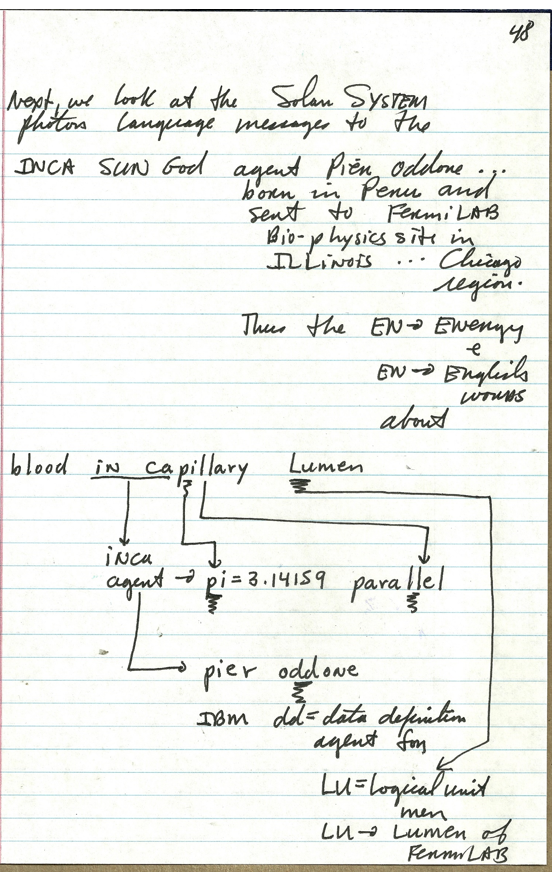 48
Next, we look at the Solar SYSTEM
photon language messages to the
INCA SUN God agent Pier Oddone ...
born in Peru and
sent to FermiLAB
Bio-physics site in
ILLINOIS ... Chicago
region.
Thus the EN→ Energy
e
EN→ English
words
about
blood in capillary Lumen
inca
agent → pi = 3.14159 parallel
pier oddone
IBM dd = data definition
agent for
LU = Logical unit
men
LU → Lumen of
FermiLAB